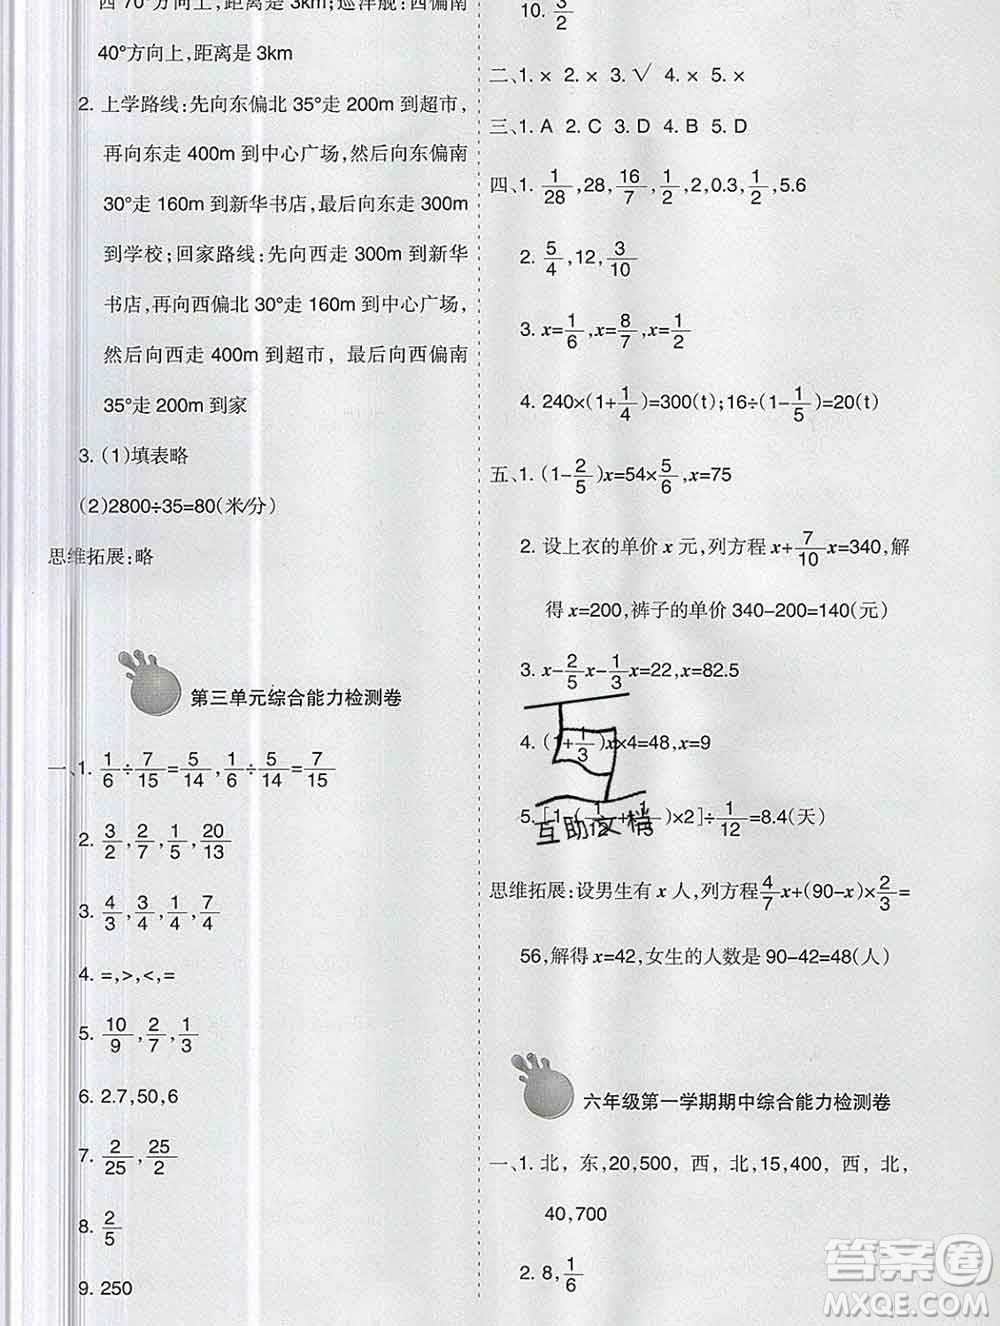 西 70°方向上,距离是 3km;巡洋舰:西偏南
40°方向上,距离是 3km
2. 上学路线:先向东偏北 35°走 200m 到超市,
再向东走 400m 到中心广场,然后向东偏南
30°走 160m 到新华书店,最后向东走 300m
到学校;回家路线:先向西走 300m 到新华
书店,再向西偏北 30°走 160m 到中心广场,
然后向西走 400m 到超市，最后向西偏南
35°走 200m 到家
3. (1)填表略
(2)2800÷35=80(米/分)
思维拓展:略
第三单元综合能力检测卷
一、1. 1/6÷7/15=5/14,1/6÷5/14=7/15
2. 3/2,2/7,1/5,20/13
3. 4/3,3/4,1/4,7/4
4. =,>,<,=
5. 10/9,2/7,1/3
6. 2.7,50,6
7. 2/25,25/2
8. 2/5
9. 250
10. 3/2
二、1. × 2. × 3. √ 4. × 5. ×
三、1. A 2. C 3. D 4. A 5. D
四、1. 1/28,28,16/7,1/2,2,0.3,1/2,5.6
2. 5/4,12,3/10
3. x=1/6,x=8/7,x=1/2
4. 240×(1+1/4)=300(t);16÷(1-1/5)=20(t)
五、1. (1-2/5)x=54×5/6,x=75
2. 设上衣的单价 x 元,列方程 x+7/10x=340,解
得 x=200,裤子的单价 340-200=140(元)
3. x-2/5x-1/3x=22,x=82.5
4. (1+1/3)x×4=48,x=9
5. [1-(1/12+1/15)×2]÷1/12=8.4(天)
互助文档
思维拓展:设男生有 x 人,列方程4/7x+(90-x)×2/3=
56,解得 x=42,女生的人数是 90-42=48(人)
六年级第一学期期中综合能力检测卷
一、1. 北，东,20,500，西，北,15,400，西，北,
40,700
2. 8,1/6
答案圈
MXQE.COM